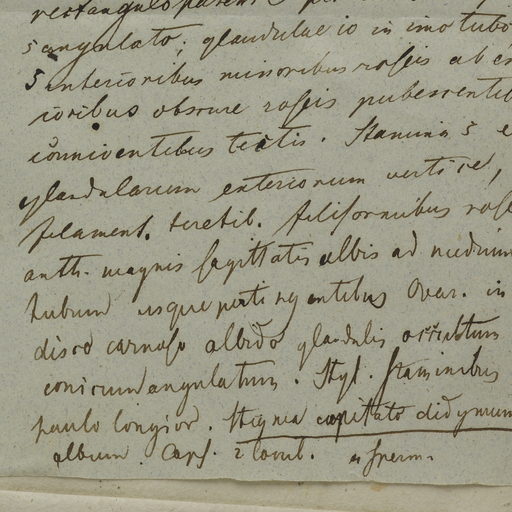 rectangulo
5 angulato; glandulae 10 in imo tubo
5 anterioribus minoribus roseis ab
ioribus obscure roseis pubescenti
conniventibus tectis. Stamina 5 e
glandularum exteriorum vertice,
filament. teretib. filiformibus ros
anth. magnis sagittatis albis ad medium
tubum usque pertingentibus Ovar. in
disco carnoso albido glandulis
conicum angulatum. Styl. staminibus
paulo longior. Stigma capitato didymum
album. Caps. 2 locul. sperm.